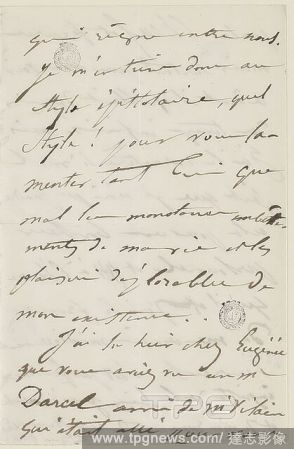 qui règne entre nous.
Je m'en tiens donc au
style épistolaire, quel
style ! pour vous la
menter tant bien que
mal les monotones
ments de ma vie et les
plaisirs déplorables de
mon existence.
J'ai su hier chez Eugénie
que vous aviez vu un Mr
Darcel ami de Mr Vilain
qui était allé
TPG
www.tpgnews.com / 達志影像